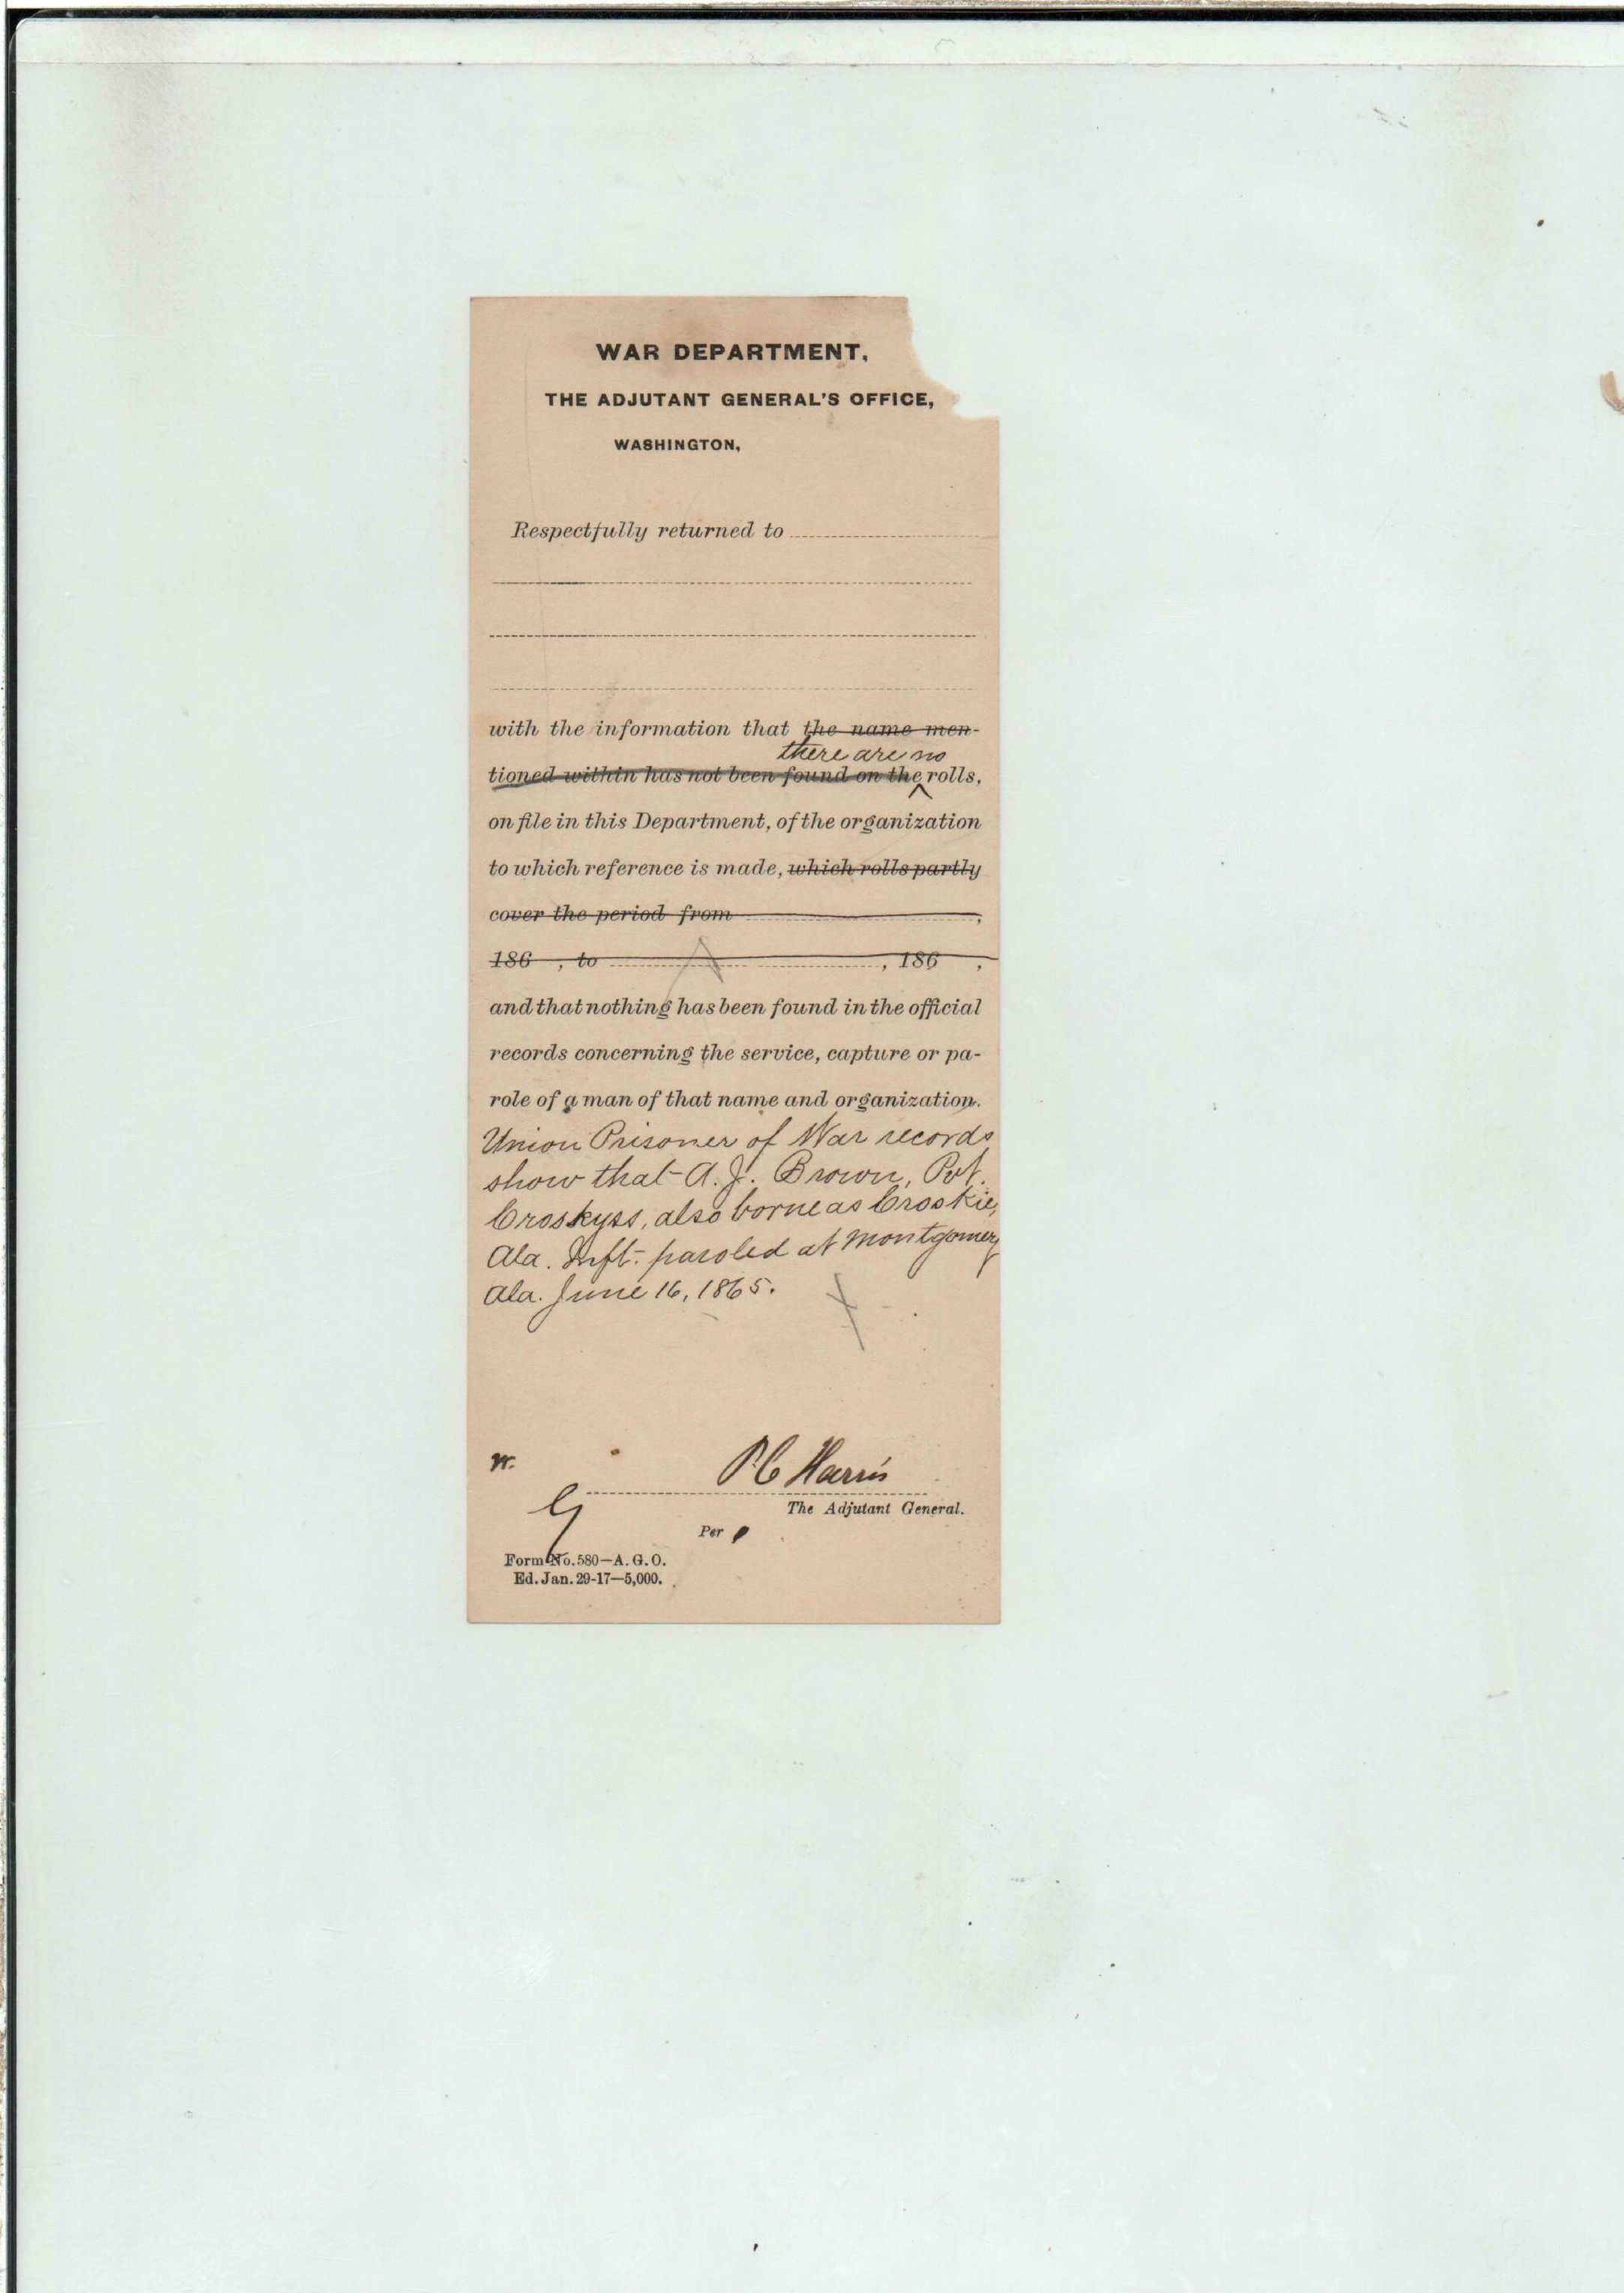 WAR DEPARTMENT,
THE ADJUTANT GENERAL'S OFFICE,
WASHINGTON,
Respectfully returned to
with the information that the name men-
there are no
tioned within has not been found on the rolls,
on file in this Department, of the organization
to which reference is made, which rolls partly
cover the period from ,
186 , to , 186 ,
and that nothing has been found in the official
records concerning the service, capture or pa-
role of a man of that name and organization.
Union Prisoner of War records
show that A. J. Brown, Pvt.
Croskyss, also borne as Croskie,
Ala. Inft. paroled at Montgomery
Ala. June 16, 1865.
W.
P C Harris
The Adjutant General.
Per
Form No. 580—A. G. O.
Ed. Jan. 29-17—5,000.